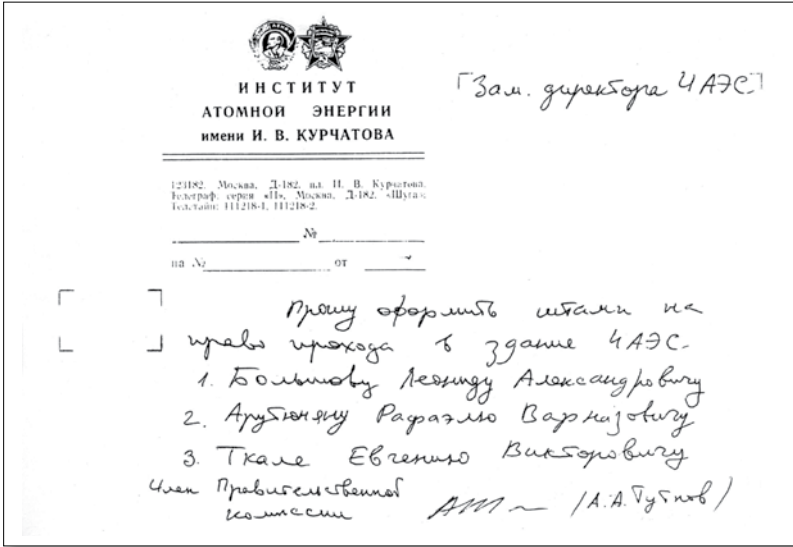 ИНСТИТУТ
АТОМНОЙ ЭНЕРГИИ
имени И. В. КУРЧАТОВА
Зам. директора ЧАЭС
123182, Москва, Д-182, пл. И. В. Курчатова.
Телеграф. серия «П», Москва, Д-182, «Шуга»;
Телетайп: 111218-1, 111218-2.
№
на № от
Прошу оформить штамп на
право прохода в здание ЧАЭС.
1. Большову Леониду Александровичу
2. Арутюняну Рафаэлю Варназовичу
3. Ткале Евгению Викторовичу
Член Правительственной
комиссии (А.А. Тутнов)